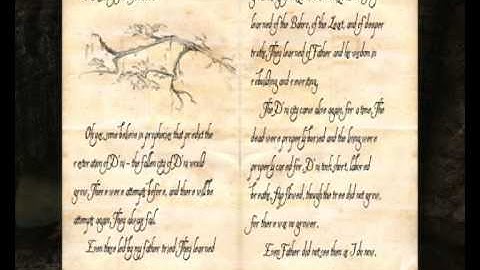 Oh yes, some believe in prophecies that predict the
restoration of D'ni - the fallen city of D'ni would
grow. There were attempts before, and there will be
attempts again. They always fail.
Even those led by my father tried. They learned
learned of the Bahro, of the Least, and of deeper
truths. They learned of Father and his wisdom in
rebuilding and rewriting.
The D'ni city came alive again, for a time. The
dead were properly buried and the living were
properly cared for. D'ni took short, labored
breaths. Hope flowed, though the tree did not grow,
for there was no grower.
Even Father did not see them as I do now.